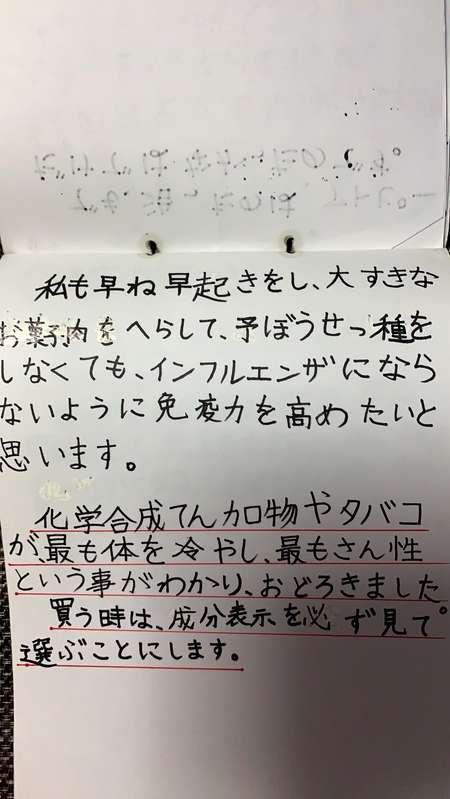 私も早ね早起きをし、大すきな
お菓子肉をへらして、予ぼうせっ種を
しなくても、インフルエンザになら
ないように免疫力を高めたいと
思います。
化学合成てんカロ物やタバコ
が、最も体を冷やし、最もさん性
という事がわかり、おどろきました。
買う時は、成分表示を必ず見て
選ぶことにします。